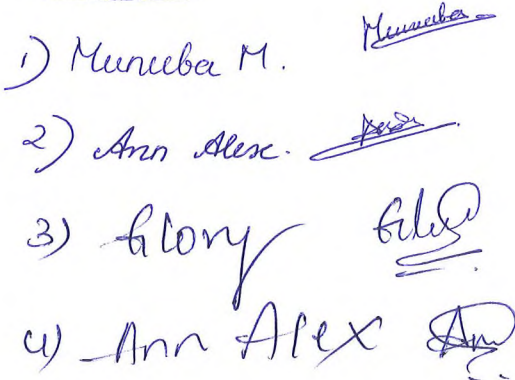 1) Muneeba M. Muneeba
2) Ann Alex.
3) Glory
4) Ann Alex Ann